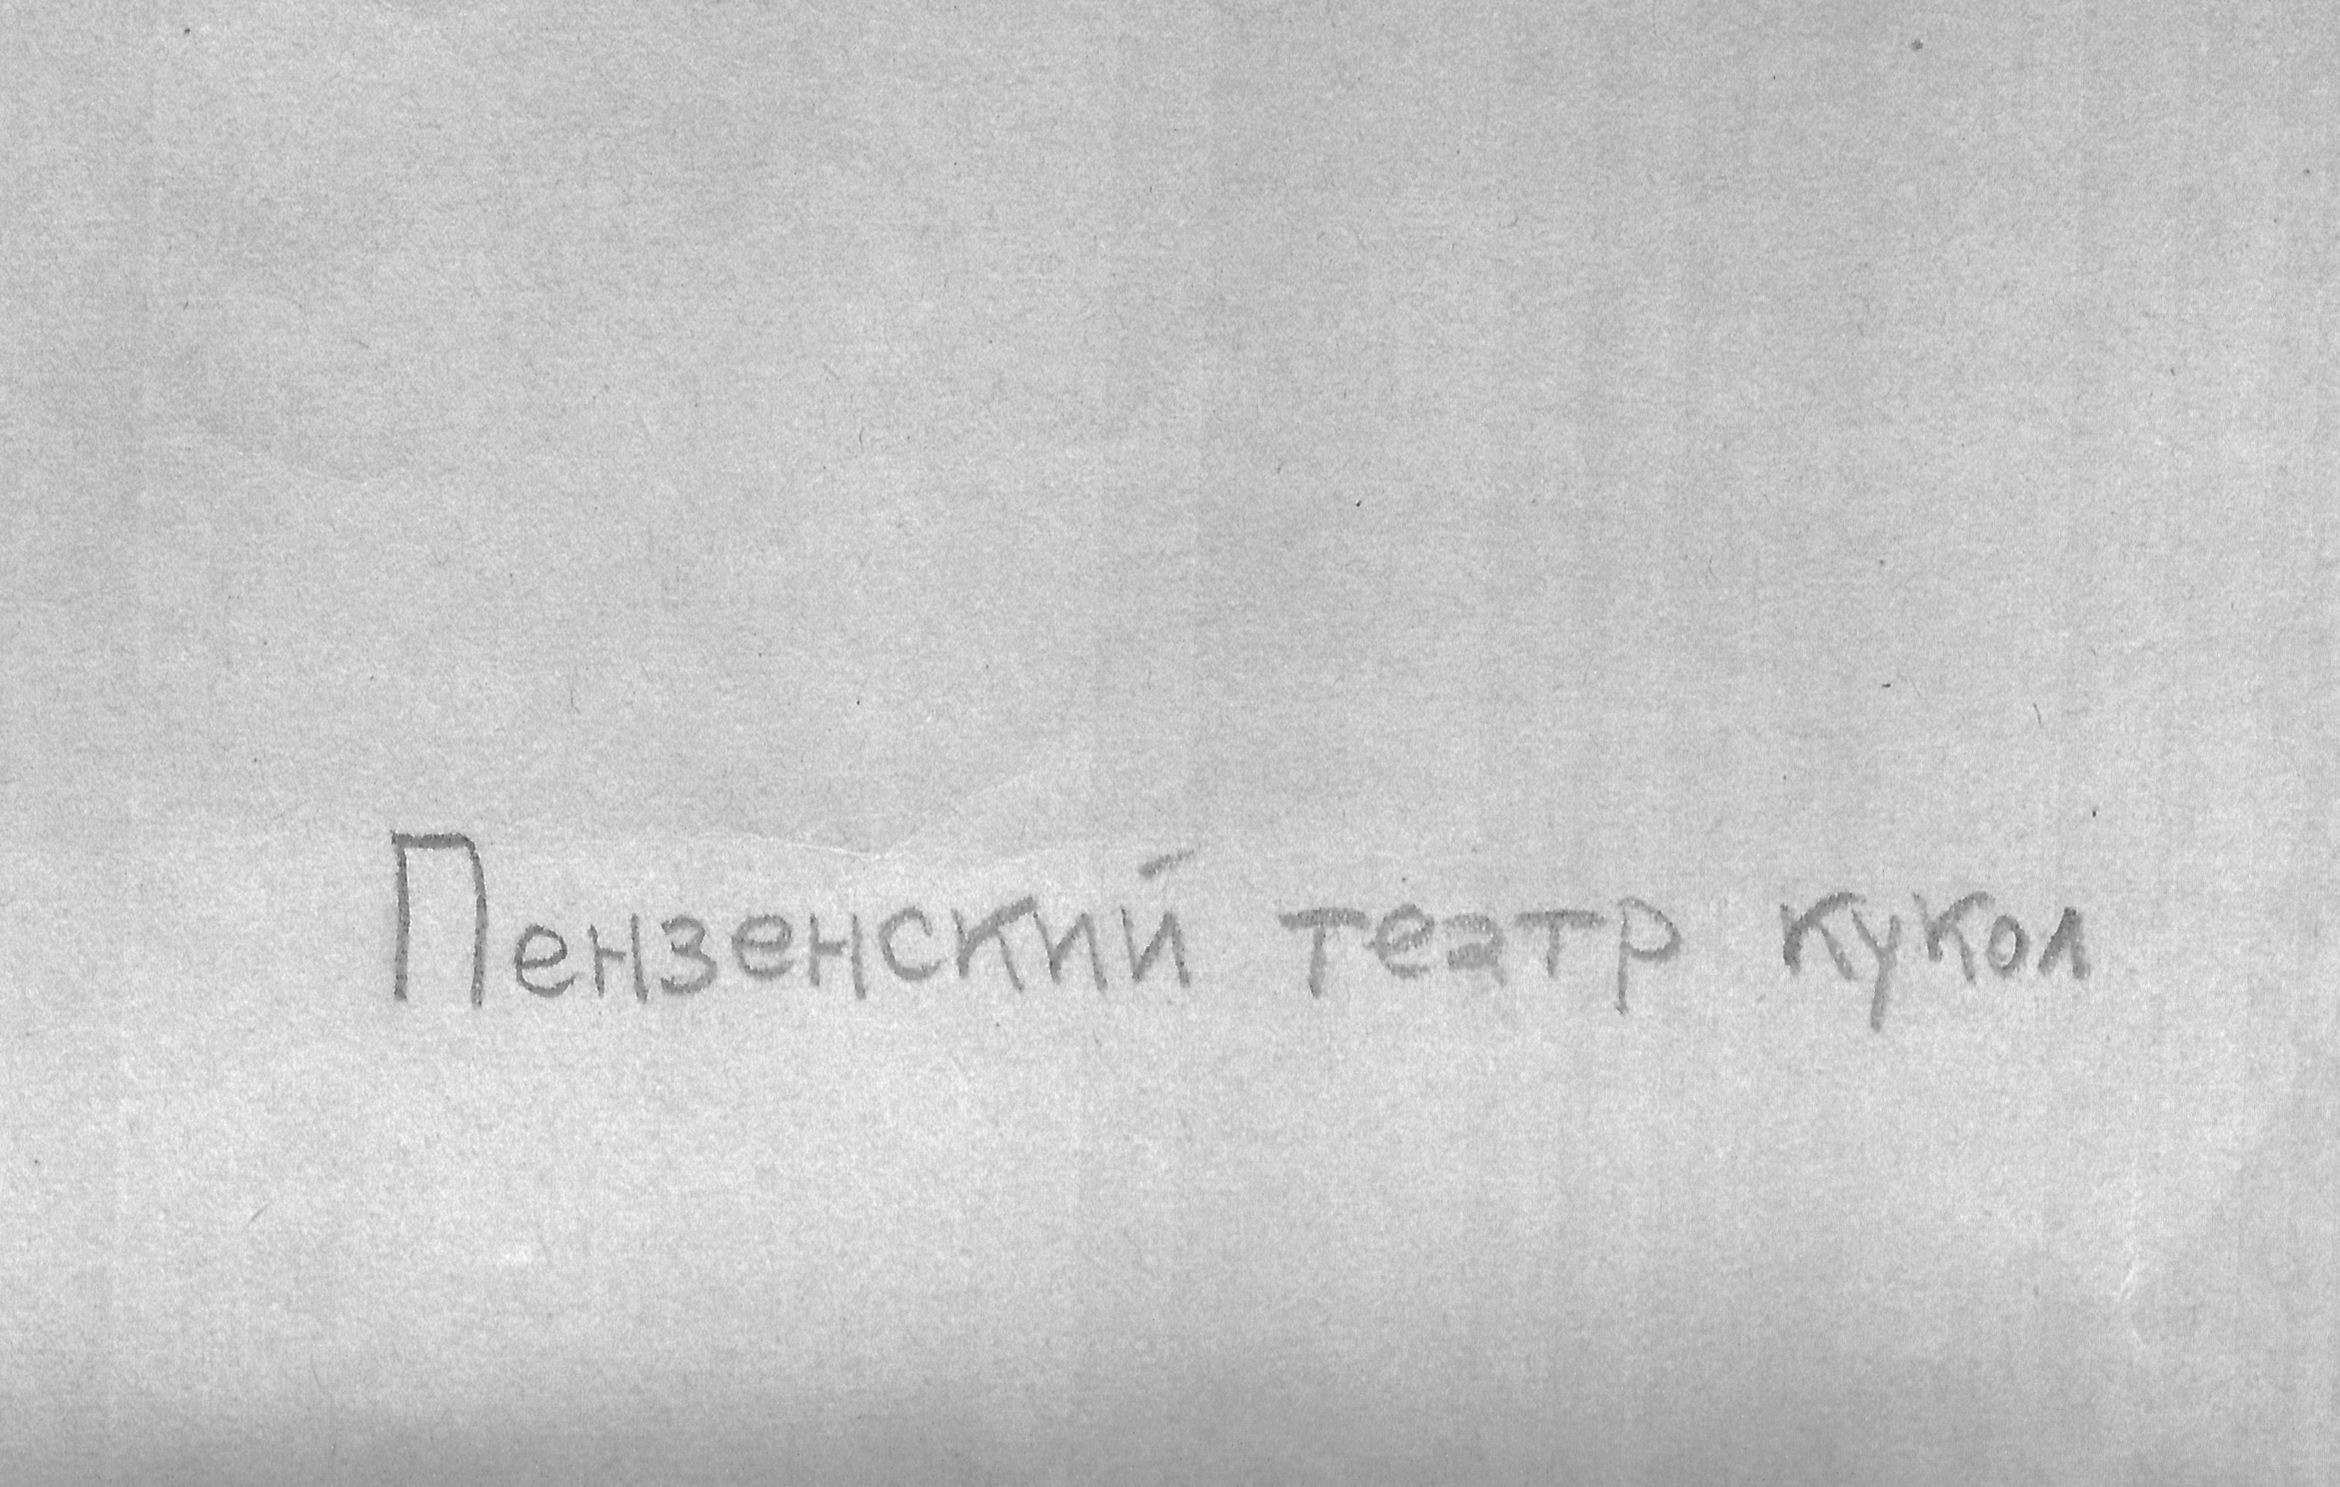 Пензенский театр кукол